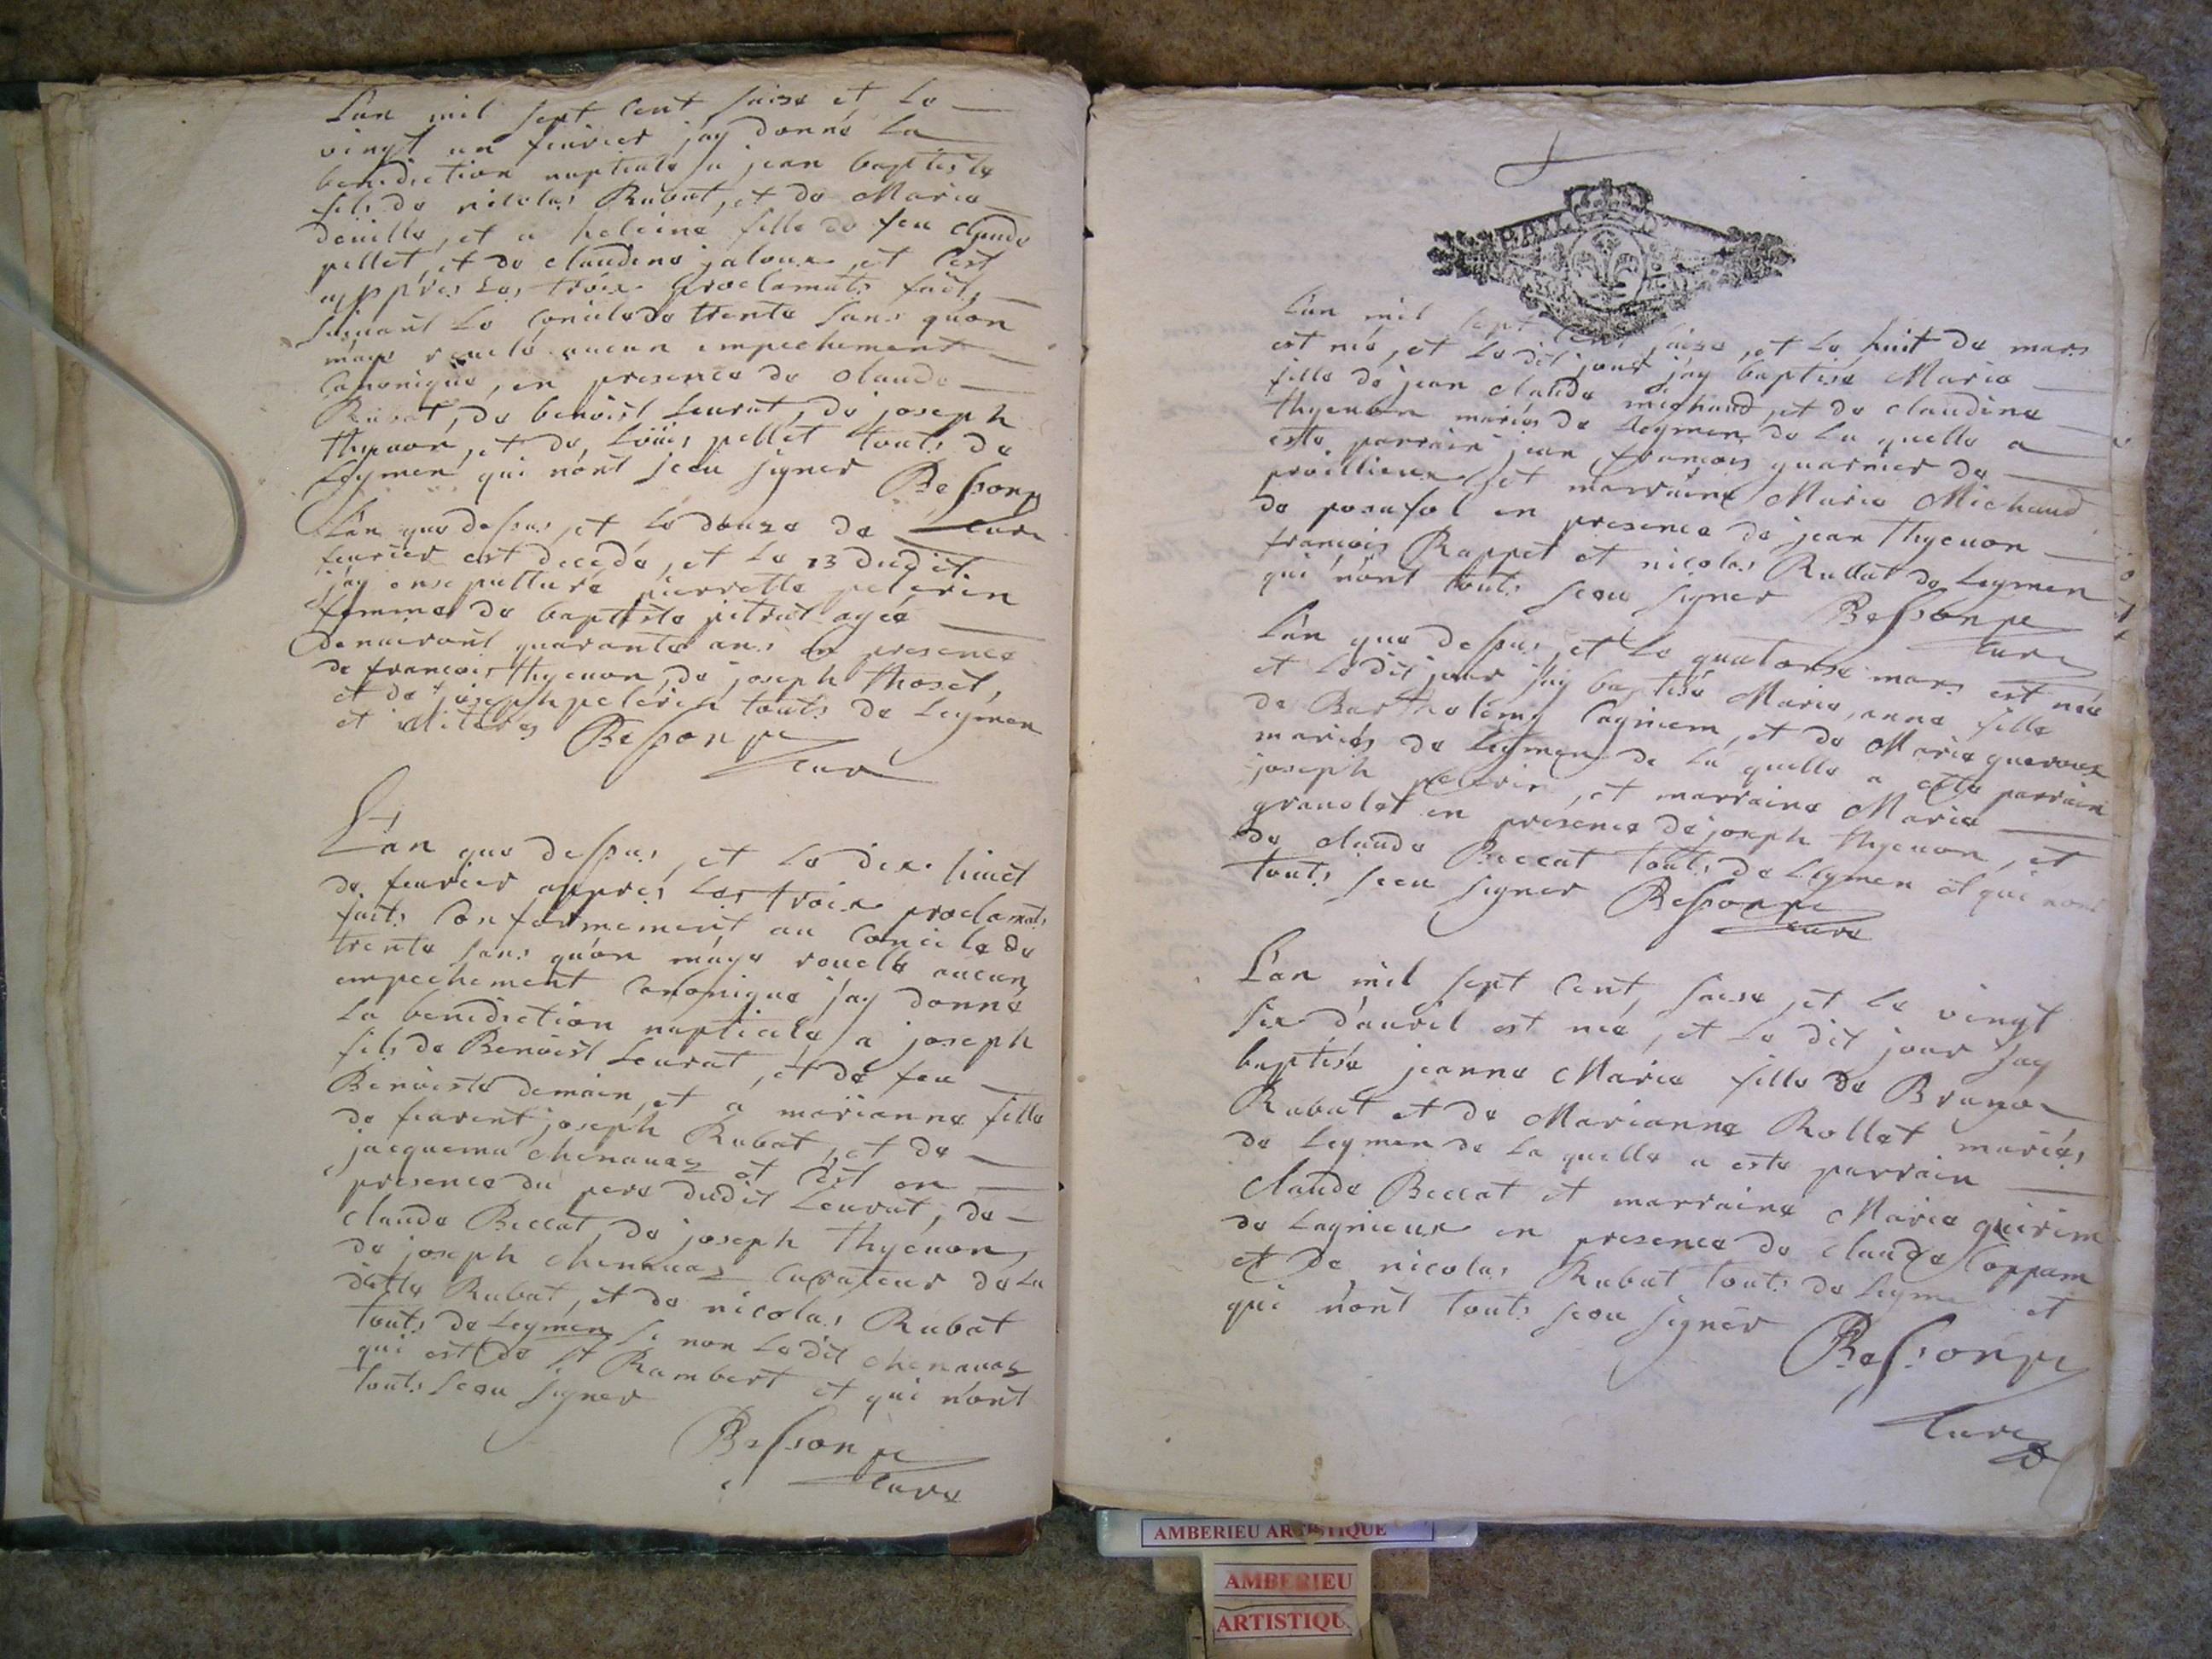 L'an mil sept Cent saise et le
vingt un feuvrier jay donné La
benediction nuptiale a jean baptiste
fils de nicolas Rubat, et de Marie
deuille, et a heleine fille de feu claude
pellet, et de claudine jaloux et Cest
appres Les troix proclamats faits
suivant Le Concile de trente sans quon
maye revelé aucun empechement
Canonique, en presence de claude
Rubat, de benoist Leurat, de joseph
thyeuon, et de Loüis pellet touts de
Leymen qui n'ont sceu signer Bessonpe
Curé
L'an que dessus, et Le douze de
feurier est decedé, et Le 13 dudit
jay ensepulturé pierrette pelerin
femme de baptiste pitrat agée
denuiront quarante ans en presence
de francois thyeuon, de joseph thoset,
et de joseph pelerin touts de Leymen
et iliteres Bessonpe
Curé
L'an que dessus, et Le dix huict
de feurier appres Les troix proclamats
faits Conformement au Concile de
trente sans qu'on m'aye reuelé aucun
empechement Canonique jay donné
La benediction nuptiale, a joseph
fils de Benoist Leurat, et de feu
Benoiste demain, et a marianne fille
de feu joseph Rubat, et de
jacquema chenauaz et Cest en
presence du pere dudit Leurat, de
claude Beccat, de joseph thyeuon,
de joseph chenauaz Curateur de La
ditte Rubat, et de nicolas Rubat
touts de Leymen si non Le dit chenauaz
qui est de St Rambert et qui n'ont
touts sceu signer
Bessonpe
Curé
L'an mil sept Cent saise, et Le huit de mars
est née, et Le dit jour jay baptisé Marie
fille de jean claude michaud, et de claudine
thyeuon mariés de Leymen de La quelle a
esté parrain jean francois quarnier de
proillieux et marraine Marie Michaud
de posafol en presence de jean thyeuon
francois Rappet et nicolas Rubat de Leymen
qui n'ont touts sceu signer Bessonpe
Curé
L'an que dessus, et Le quatorse mars est née
et Le dit jour jay baptisé Marie, anne fille
de Bartholemy Cagniem, et de Marie
mariés de Leymen de La quelle a esté parrain
joseph pelerin, et marraine Marie
grauelat en presence de joseph thyeuon, et
de claude Beccat touts de Leymen et qui n'ont
touts sceu signer Bessonpe
Curé
L'an mil sept Cent, saise, et Le vingt
six d'auril est née, et Le dit jour jay
baptisé jeanne Marie fille de Bruno
Rubat et de Marianne Rollet mariés
de Leymen de La quelle a esté parrain
Claude Beccat et marraine Marie quirim
de Lagnieux en presence de claude Coppam
et de nicolas Rubat touts de Leyme et
qui n'ont touts sceu signer
Bessonpe
Curé
AMBERIEU ARTISTIQUE
AMBERIEU
ARTISTIQU